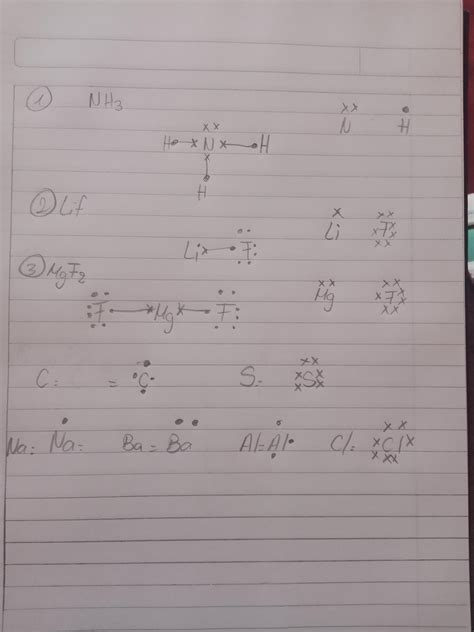 1 NH3
N H
H N H
H
2 Lif
Li F
Li F
3 MgF2
Mg F
F Mg F
C: = C S: S
Na: Na: Ba = Ba Al = Al Cl: Cl